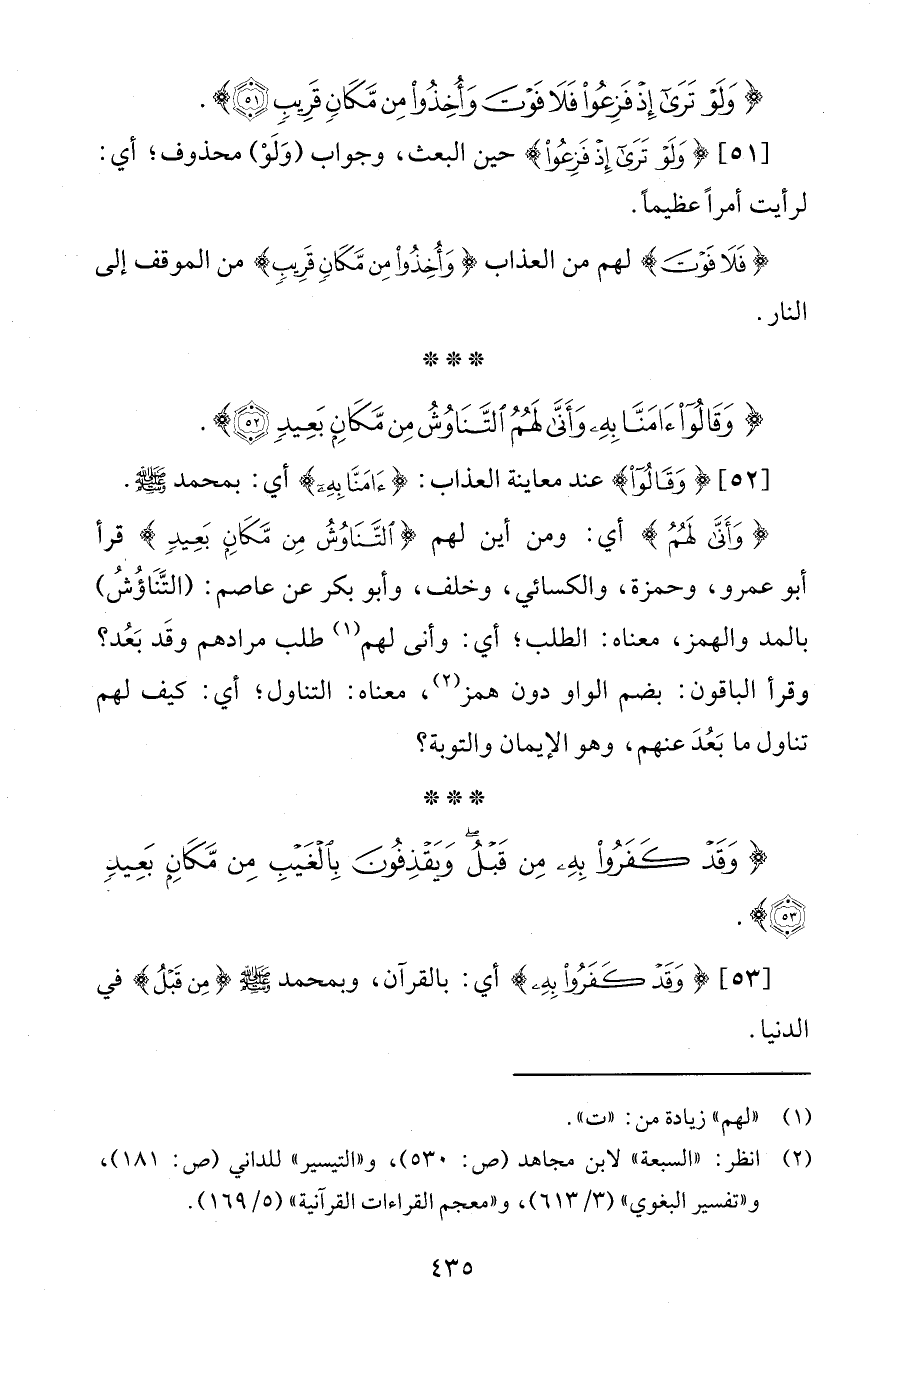 ﴿ وَلَوْ تَرَىٰٓ إِذْ فَزِعُوا۟ فَلَا فَوْتَ وَأُخِذُوا۟ مِن مَّكَانٍ قَرِيبٍ ۝٥١ ﴾ .
[٥١] ﴿ وَلَوْ تَرَىٰٓ إِذْ فَزِعُوا۟ ﴾ حين البعث، وجواب (وَلَوْ) محذوف؛ أي:
لرأيت أمراً عظيماً.
﴿ فَلَا فَوْتَ ﴾ لهم من العذاب ﴿ وَأُخِذُوا۟ مِن مَّكَانٍ قَرِيبٍ ﴾ من الموقف إلى
النار .
* * *
﴿ وَقَالُوٓا۟ ءَامَنَّا بِهِۦ وَأَنَّىٰ لَهُمُ ٱلتَّنَاوُشُ مِن مَّكَانٍۭ بَعِيدٍ ۝٥٢ ﴾ .
[٥٢] ﴿ وَقَالُوٓا۟ ﴾ عند معاينة العذاب: ﴿ ءَامَنَّا بِهِۦ ﴾ أي: بمحمد ﷺ .
﴿ وَأَنَّىٰ لَهُمُ ﴾ أي: ومن أين لهم ﴿ ٱلتَّنَاوُشُ مِن مَّكَانٍۭ بَعِيدٍ ﴾ قرأ
أبو عمرو، وحمزة، والكسائي، وخلف، وأبو بكر عن عاصم: (التَّنَاؤُشُ)
بالمد والهمز، معناه: الطلب؛ أي: وأنى لهم(١) طلب مرادهم وقَد بَعُد؟
وقرأ الباقون: بضم الواو دون همز(٢)، معناه: التناول؛ أي: كيف لهم
تناول ما بَعُدَ عنهم، وهو الإيمان والتوبة؟
* * *
﴿ وَقَدْ كَفَرُوا۟ بِهِۦ مِن قَبْلُ ۖ وَيَقْذِفُونَ بِٱلْغَيْبِ مِن مَّكَانٍۭ بَعِيدٍ
۝٥٣ ﴾ .
[٥٣] ﴿ وَقَدْ كَفَرُوا۟ بِهِۦ ﴾ أي: بالقرآن، وبمحمد ﷺ ﴿ مِن قَبْلُ ﴾ في
الدنيا .
(١) «لهم» زيادة من: «ت».
(٢) انظر: «السبعة» لابن مجاهد (ص: ٥٣٠)، و«التيسير» للداني (ص: ١٨١)،
و«تفسير البغوي» (٣/ ٦١٣)، و«معجم القراءات القرآنية» (٥/ ١٦٩).
٤٣٥